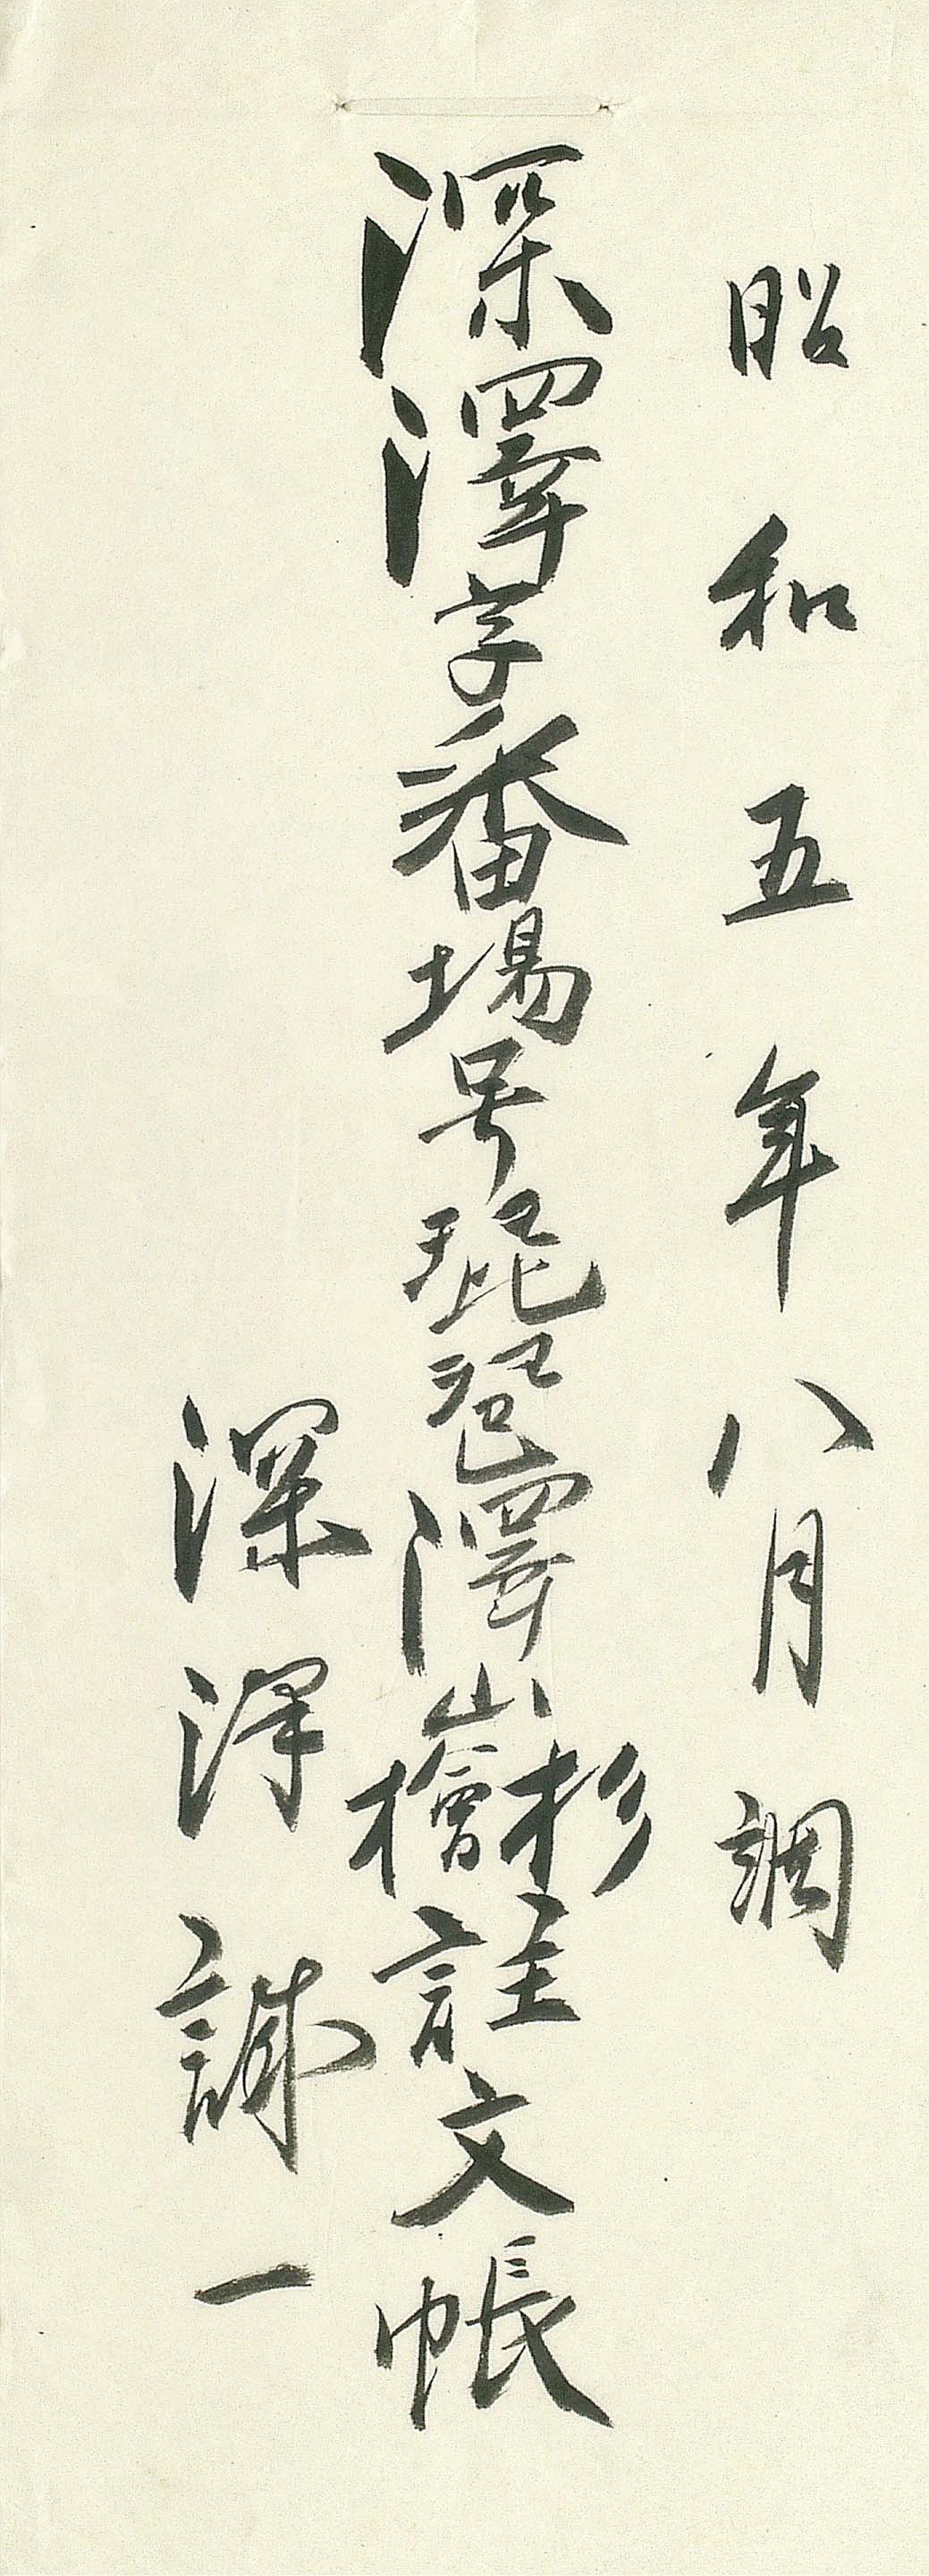 昭和五年八月調
深澤字番場号琵琶澤山杉檜註文帳
深澤誠一